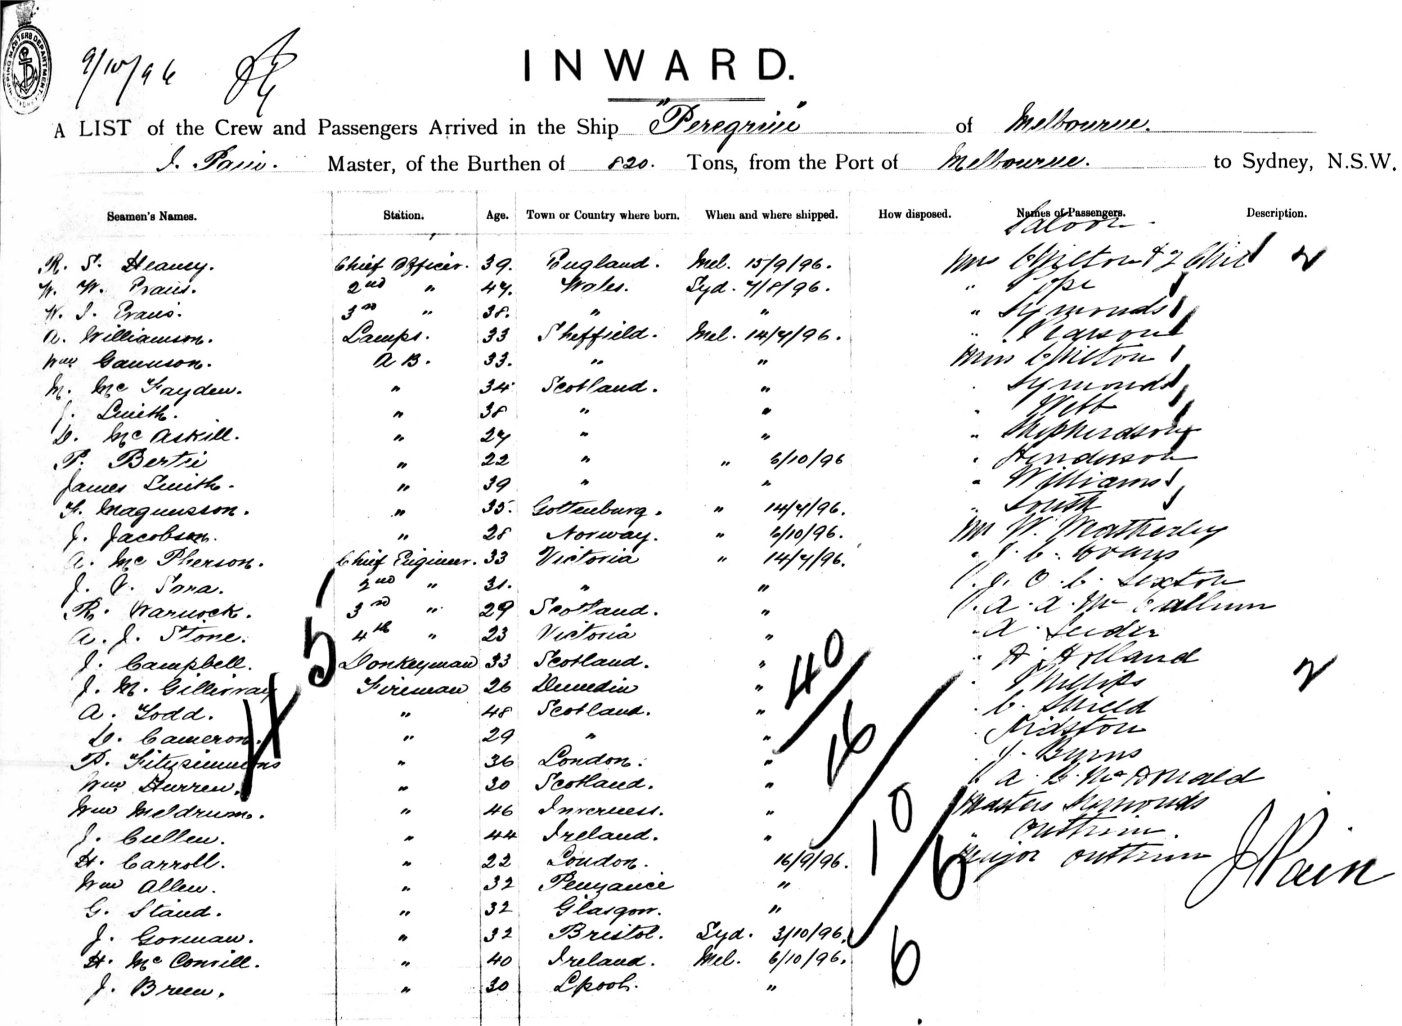 9/10/96
INWARD.
A LIST of the Crew and Passengers Arrived in the Ship "Peregrine" of Melbourne.
J. Pain. Master, of the Burthen of 820. Tons, from the Port of Melbourne. to Sydney, N.S.W.
Seamen's Names. Station. Age. Town or Country where born. When and where shipped. How disposed. Names of Passengers. Description.
Saloon
R. S. Heaney. Chief Officer. 39. England. Mel. 15/9/96. Mrs Chilton & 2 Chil 2
W. W. Evans. 2nd " 47. Wales. Syd. 7/8/96. "
W. J. Evans. 3rd " 38. " " " Symonds
A. Williamson. Lamps. 33 Sheffield. Mel. 14/7/96. " Pearson
Wm Gannson. A B. 33. " " Miss Chilton
M. Mc Fayden. " 34 Scotland. " " Symonds
J. Smith. " 38 " " " Webb
D. McAskill. " 27 " " " Shepherdson
P. Bertie " 22 " " 6/10/96 " Henderson
James Smith. " 39 " " " Williams
F. Magnusson. " 35. Gottenburg. " 14/7/96. " South
J. Jacobson. " 28 Norway. " 6/10/96. Mr W. Weatherley
A. McPherson. Chief Engineer. 33 Victoria " 14/7/96. " J. C. Evans
J. V. Sara. 2nd " 31. " " " J. O. C. Sexton
R. Warnock. 3rd " 29 Scotland. " " A. A. McCallum
A. J. Stone. 4th " 23 Victoria " "
J. Campbell. Donkeyman 33 Scotland. " " H. Holland
J. McGillivray Fireman 26 Dunedin " " Phillips 2
A. Todd. " 48 Scotland. " " C. Shield
D. Cameron. " 29 " " "
P. Fitzsimmons " 36 London. " " J. Byrns
Wm Hurren. " 30 Scotland. " " A. C. McDonald
Wm Meldrum. " 46 Inverness. " Masters Symonds
J. Cullen. " 44 Ireland. " " Outtrim.
H. Carroll. " 22 London. 16/9/96. Major Outtrim
Wm Allen. " 32 Penzance "
G. Staud. " 32 Glasgow. "
J. Gorman. " 32 Bristol. Syd. 3/10/96.
H. McConvill. " 40 Ireland. Mel. 6/10/96.
J. Breen. " 30 Lpool. "
J Pain
45
40/
16/
10/6
6